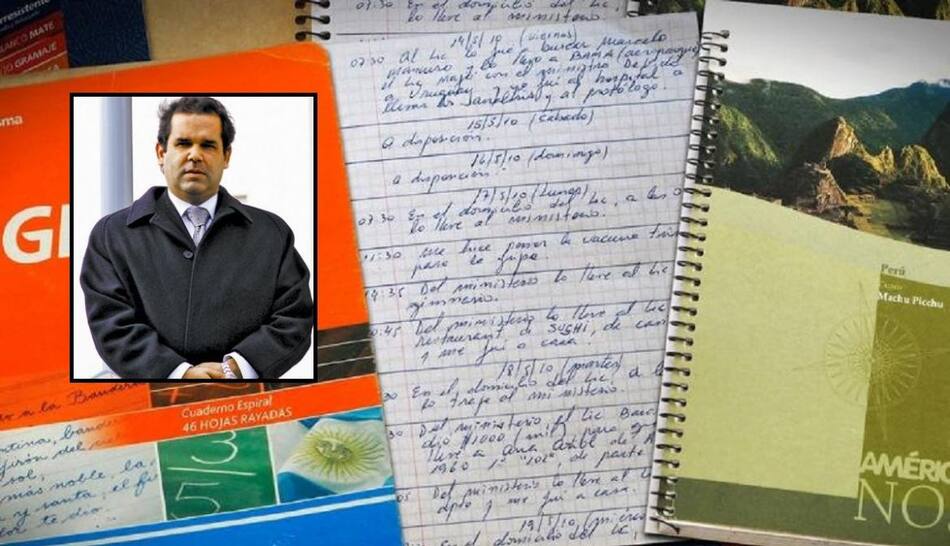 resistente
BLANCO MATE
GRAMAJE
HOJAS
07:30 En el domicilio del Lic,
lo lleve al ministerio.
14/5/10 (viernes)
07:30 Al Lic lo fue a buscar Marcelo
y lo llevo a BAMA (aeroparque)
el Lic viajó con el ministro De Vido
a Uruguay y yo fui al hospital a
y al protólogo.
15/5/10 (sabado)
A disposición.
16/5/10 (domingo)
a disposición.
17/5/10 (Lunes)
07:30 En el domicilio del Lic, a las
lo lleve al ministerio.
11:30 me hice poner la vacuna
para la gripe.
14:35 Del ministerio lo lleve al Lic
gimnasio.
:45 Del ministerio lo lleve al Lic
restaurant de SUSHI, de
y me fui a casa.
18/5/10 (martes)
30 En el domicilio del Lic, a l
lo traje al ministerio.
30 Del ministerio el Lic Bara
dio $1000 (mil) para
lleve a
1960 1° "102", de parte
05 Del ministerio lo lleve al
dpto y me fui a casa.
19/5/10 (mierco
En el domicilio del Lic,
sma
GL
Cuaderno Espiral
46 HOJAS RAYADAS
a la Bandera
bande
girón del
sol,
más noble, la
y santa, el
te dio.
5/3
5
Perú
Cusco
Machu Picchu
AMÉR
NO